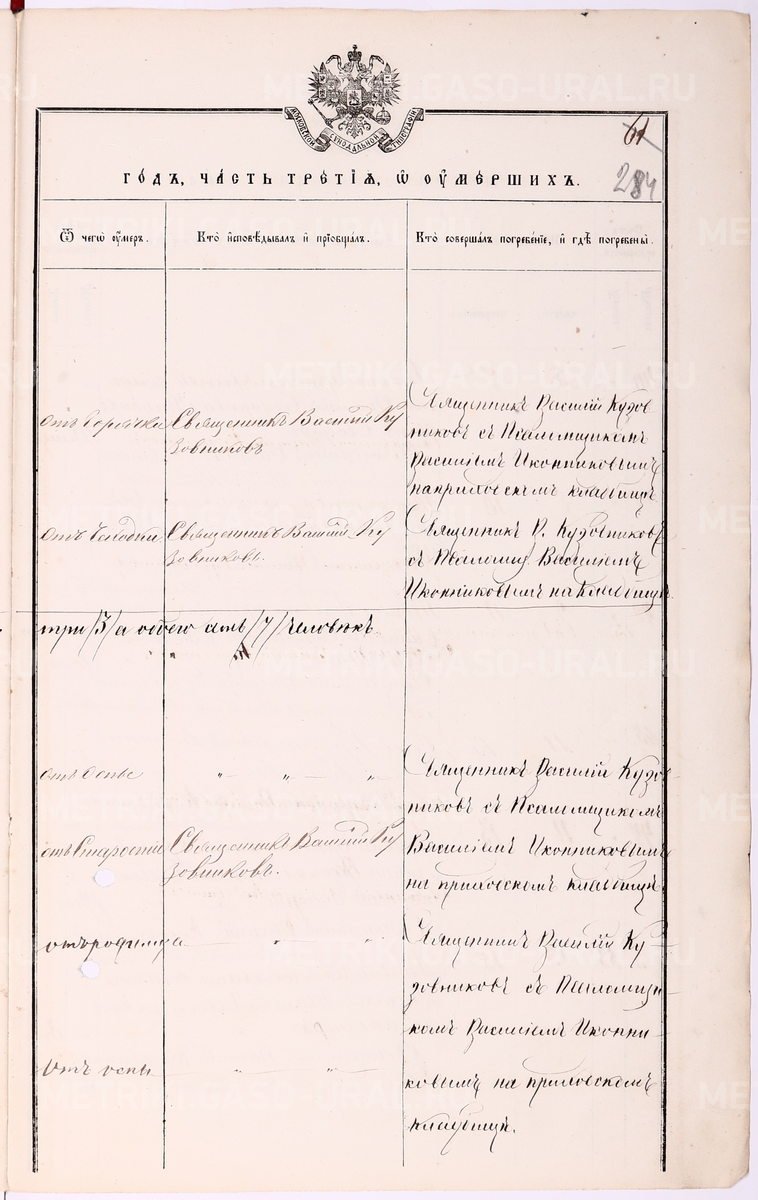 МОСКОВСКОЙ СѴНОДАЛЬНОЙ ТИПОГРАФІИ
61
284
ГОДЪ, ЧАСТЬ ТРЕТІЯ, Ѡ ОУМЕРШИХЪ.
Ѿ чегѡ оумеръ.
Кто исповѣдывалъ и пріобщалъ.
Кто совершалъ погребеніе, и гдѣ погребены.
отъ горячки
Священникъ Василій Ку
зовниковъ
Священникъ Василій Кузов
никовъ съ Псаломщикомъ
Василіемъ Иконниковымъ
на приходскомъ кладбищѣ
отъ
Священникъ Василій Ку
зовниковъ.
Священникъ В. Кузовниковъ
съ Псаломщ. Василіемъ
Иконниковымъ на кладбищѣ
три /3/ а обоего /7/ человѣкъ
отъ оспы
" " "
Священникъ Василій Кузов
никовъ съ Псаломщикомъ
отъ старости
Священникъ Василій Ку
зовниковъ.
Василіемъ Иконниковымъ
на приходскомъ кладбищѣ
отъ родимца
" "
Священникъ Василій Ку
зовниковъ съ Псаломщи
комъ Василіемъ Иконни
отъ оспы
" "
ковымъ на приходскомъ
кладбищѣ.
METRIKI.GASO-URAL.RU